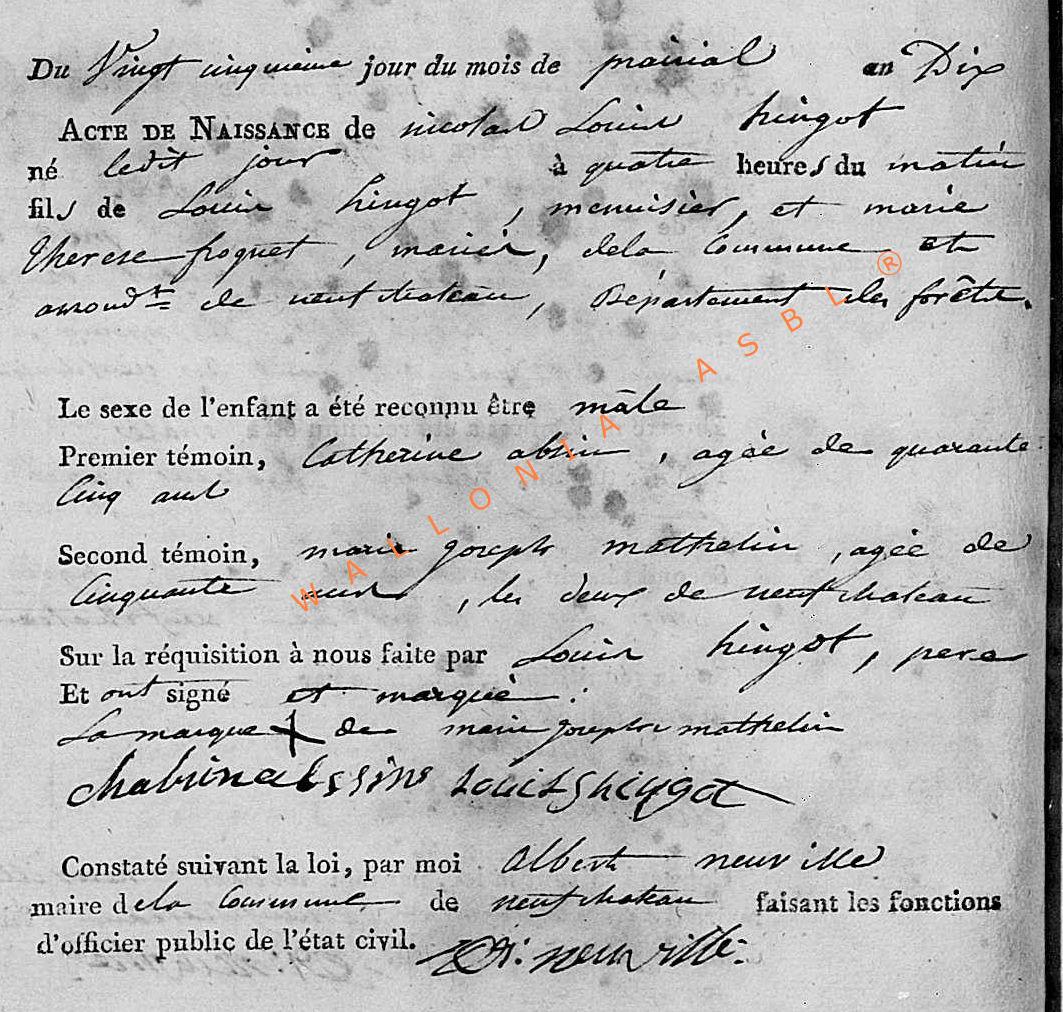 Du Vingt cinquieme jour du mois de prairial an Dix
ACTE DE NAISSANCE de nicolas Louis hingot
né ledit jour à quatre heures du matin
fils de Louis hingot, menuisier, et marie
therese froquet, mariés, dela Commune et
arrond.te de neufchateau, Département des forêts.
Le sexe de l'enfant a été reconnu être mâle
Premier témoin, Catherine , agée de quarante
Cinq ans
Second témoin, marie joseph mathelin, agée de
Cinquante ans, les deux de neufchateau
Sur la réquisition à nous faite par Louis hingot, pere
Et ont signé et marqué :
La marque + de marie joseph mathelin
Louis hingot
Constaté suivant la loi, par moi Albert neuville
maire dela Commune de neufchateau faisant les fonctions
d'officier public de l'état civil. A: neuville
WALLONIA ASBL ®